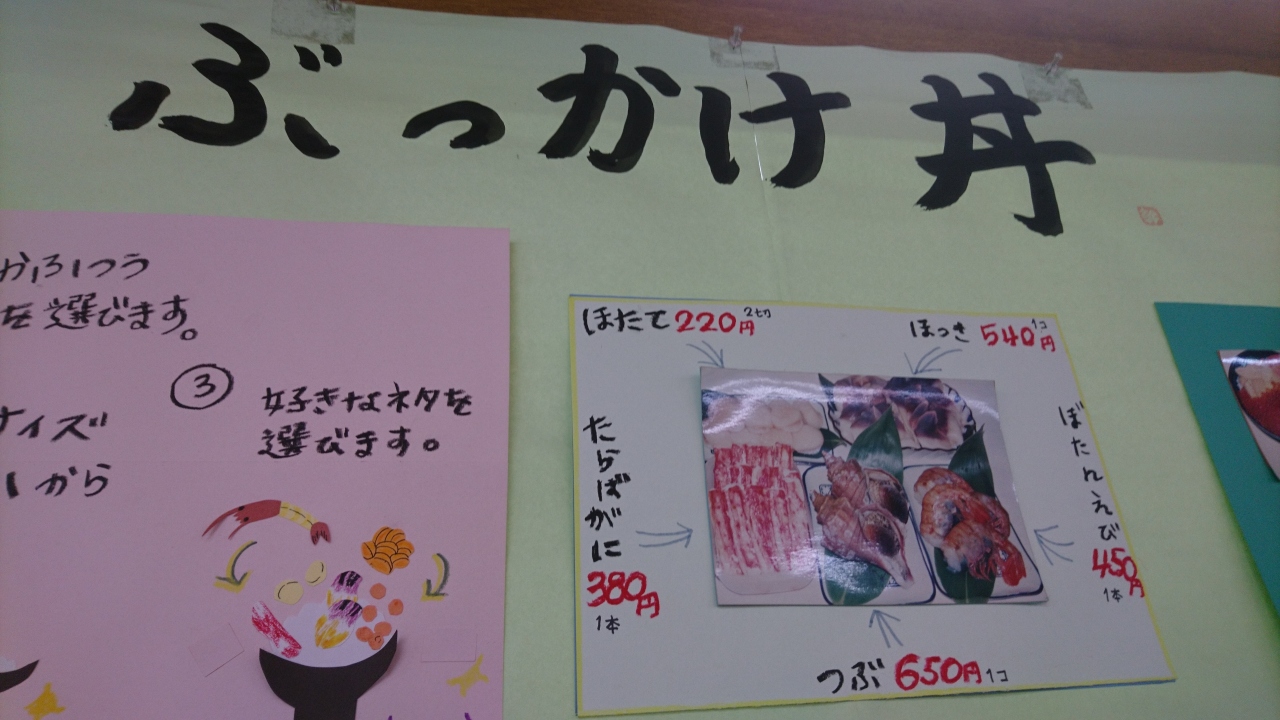 ぶっかけ丼
かふつう
を選びます。
サイズ
から
③ 好きなネタを
選びます。
ほたて220円2切
ほっき540円1コ
たらばがに
380円
1本
ぼたんえび
450円
1本
つぶ650円1コ